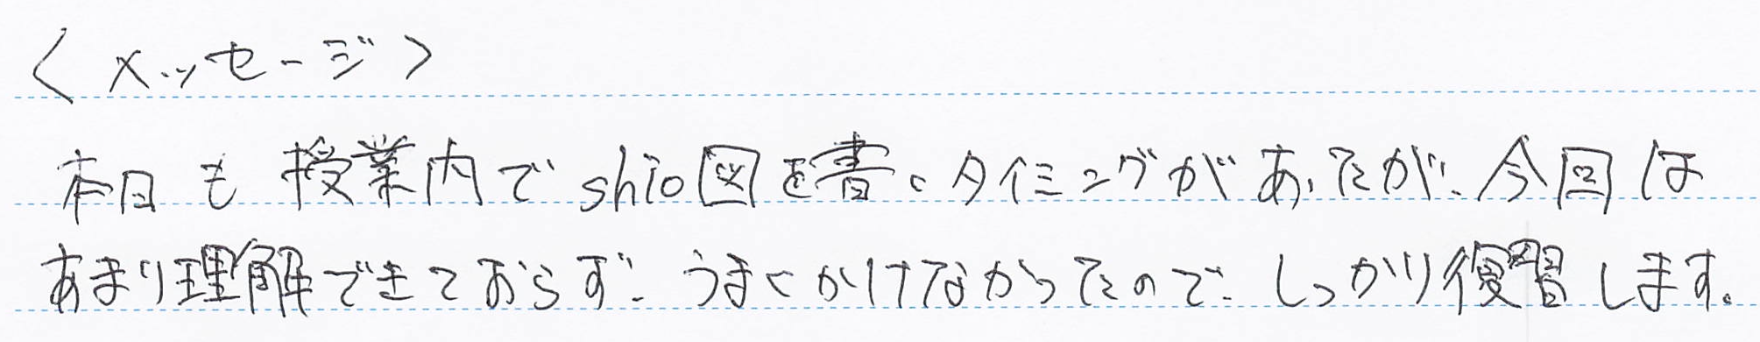 〈メッセージ〉
本日も授業内でshio図を書くタイミングがあったが、今回は
あまり理解できておらず、うまくかけなかったので、しっかり復習します。